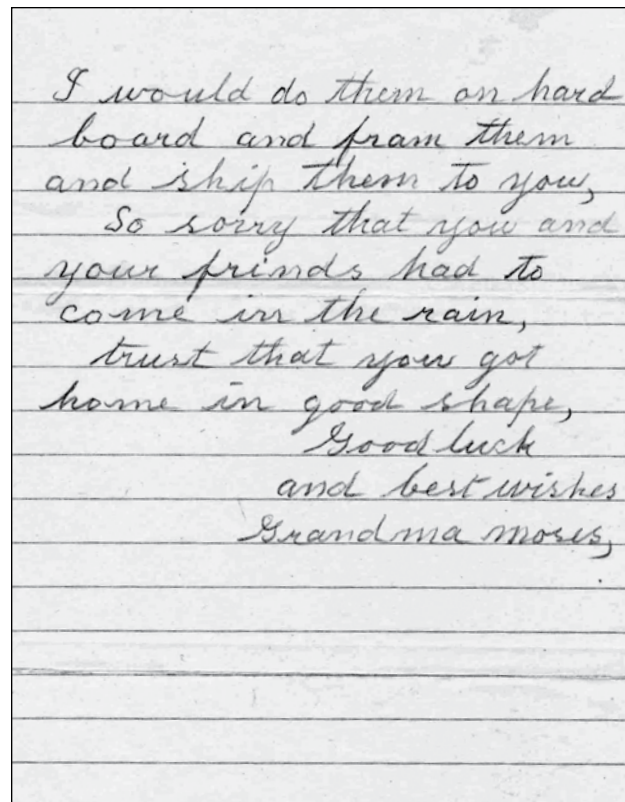 I would do them on hard
board and fram them
and ship them to you,
So sorry that you and
your frinds had to
come in the rain,
trust that you got
home in good shape,
Good luck
and best wishes
Grandma Moses,